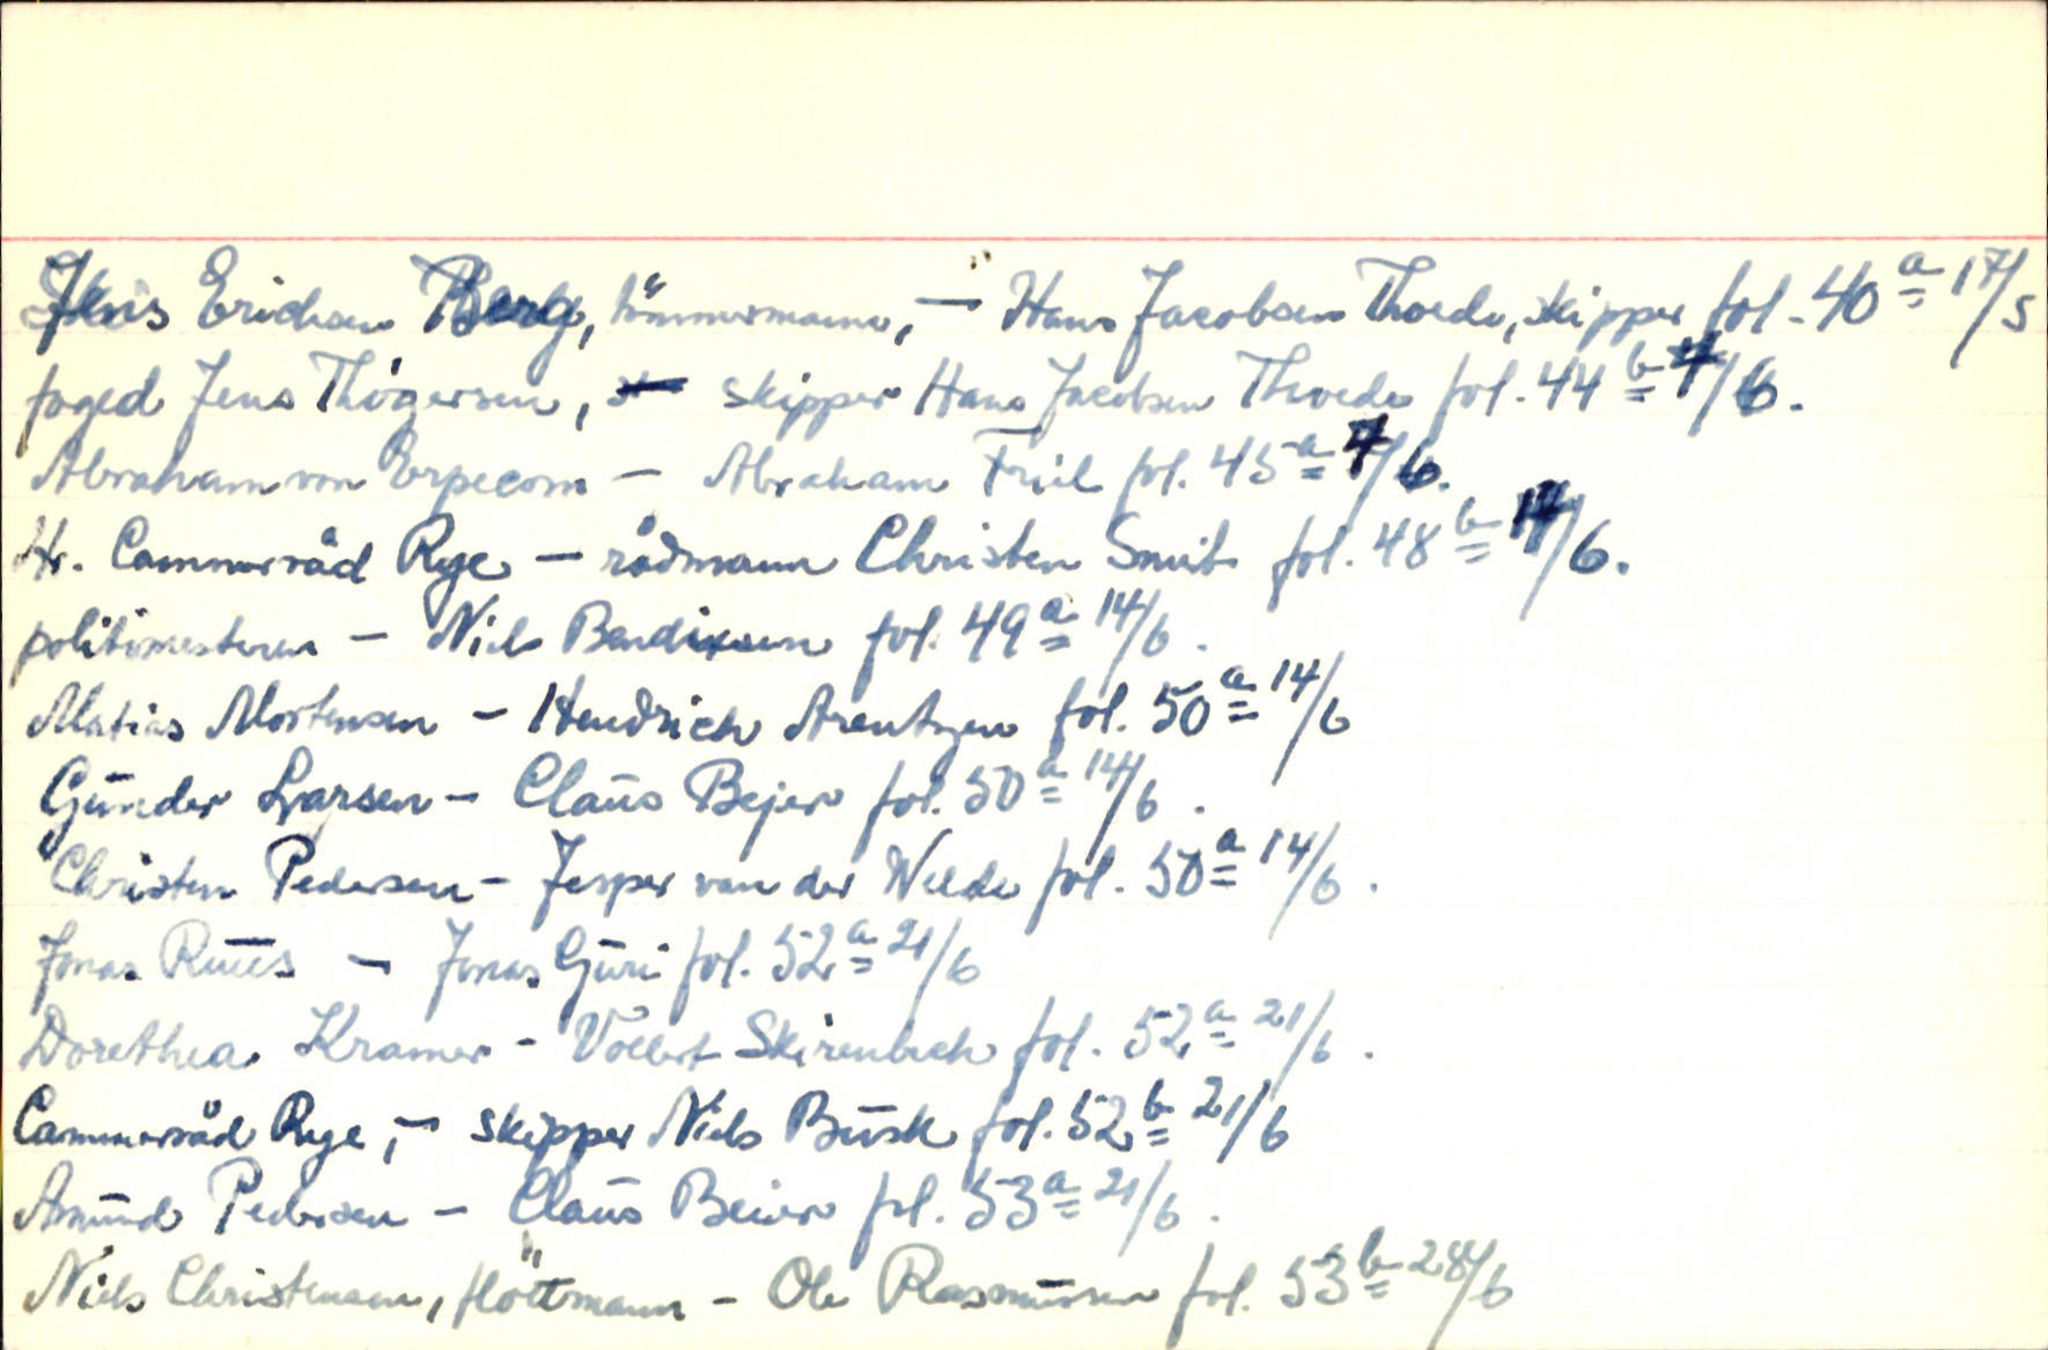 Jens Erichsen Berg, tömmermann, — Hans Jacobsen Thode, skipper fol. 40 a 17/5
foged Jens Thögersen, skipper Hans Jacobsen Thode fol. 44 b 7/6.
Abraham von Erpecom — Abraham Friil fol. 45 a 7/6.
Hr. Cammerråd Rye — rådmann Christen Smit fol. 48 b 14/6.
politimesteren — Niels Bendixsen fol. 49 a 14/6.
Matias Mortensen — Hendrich Arentzen fol. 50 a 14/6
Gunder Larsen — Claus Bejer fol. 50 a 14/6.
Christen Pedersen — Jesper van der Welde fol. 50 a 14/6.
Jonas Ruus — Jonas Guri fol. 52 a 21/6
Dorethea Kramer — Vollert fol. 52 a 21/6.
Cammerråd Rye, — skipper Niels Busk fol. 52 b 21/6
Amund Pedersen — Claus Beier fol. 53 a 21/6.
Niels Christensen, flöttmann — Ole Rasmussen fol. 53 b 28/6